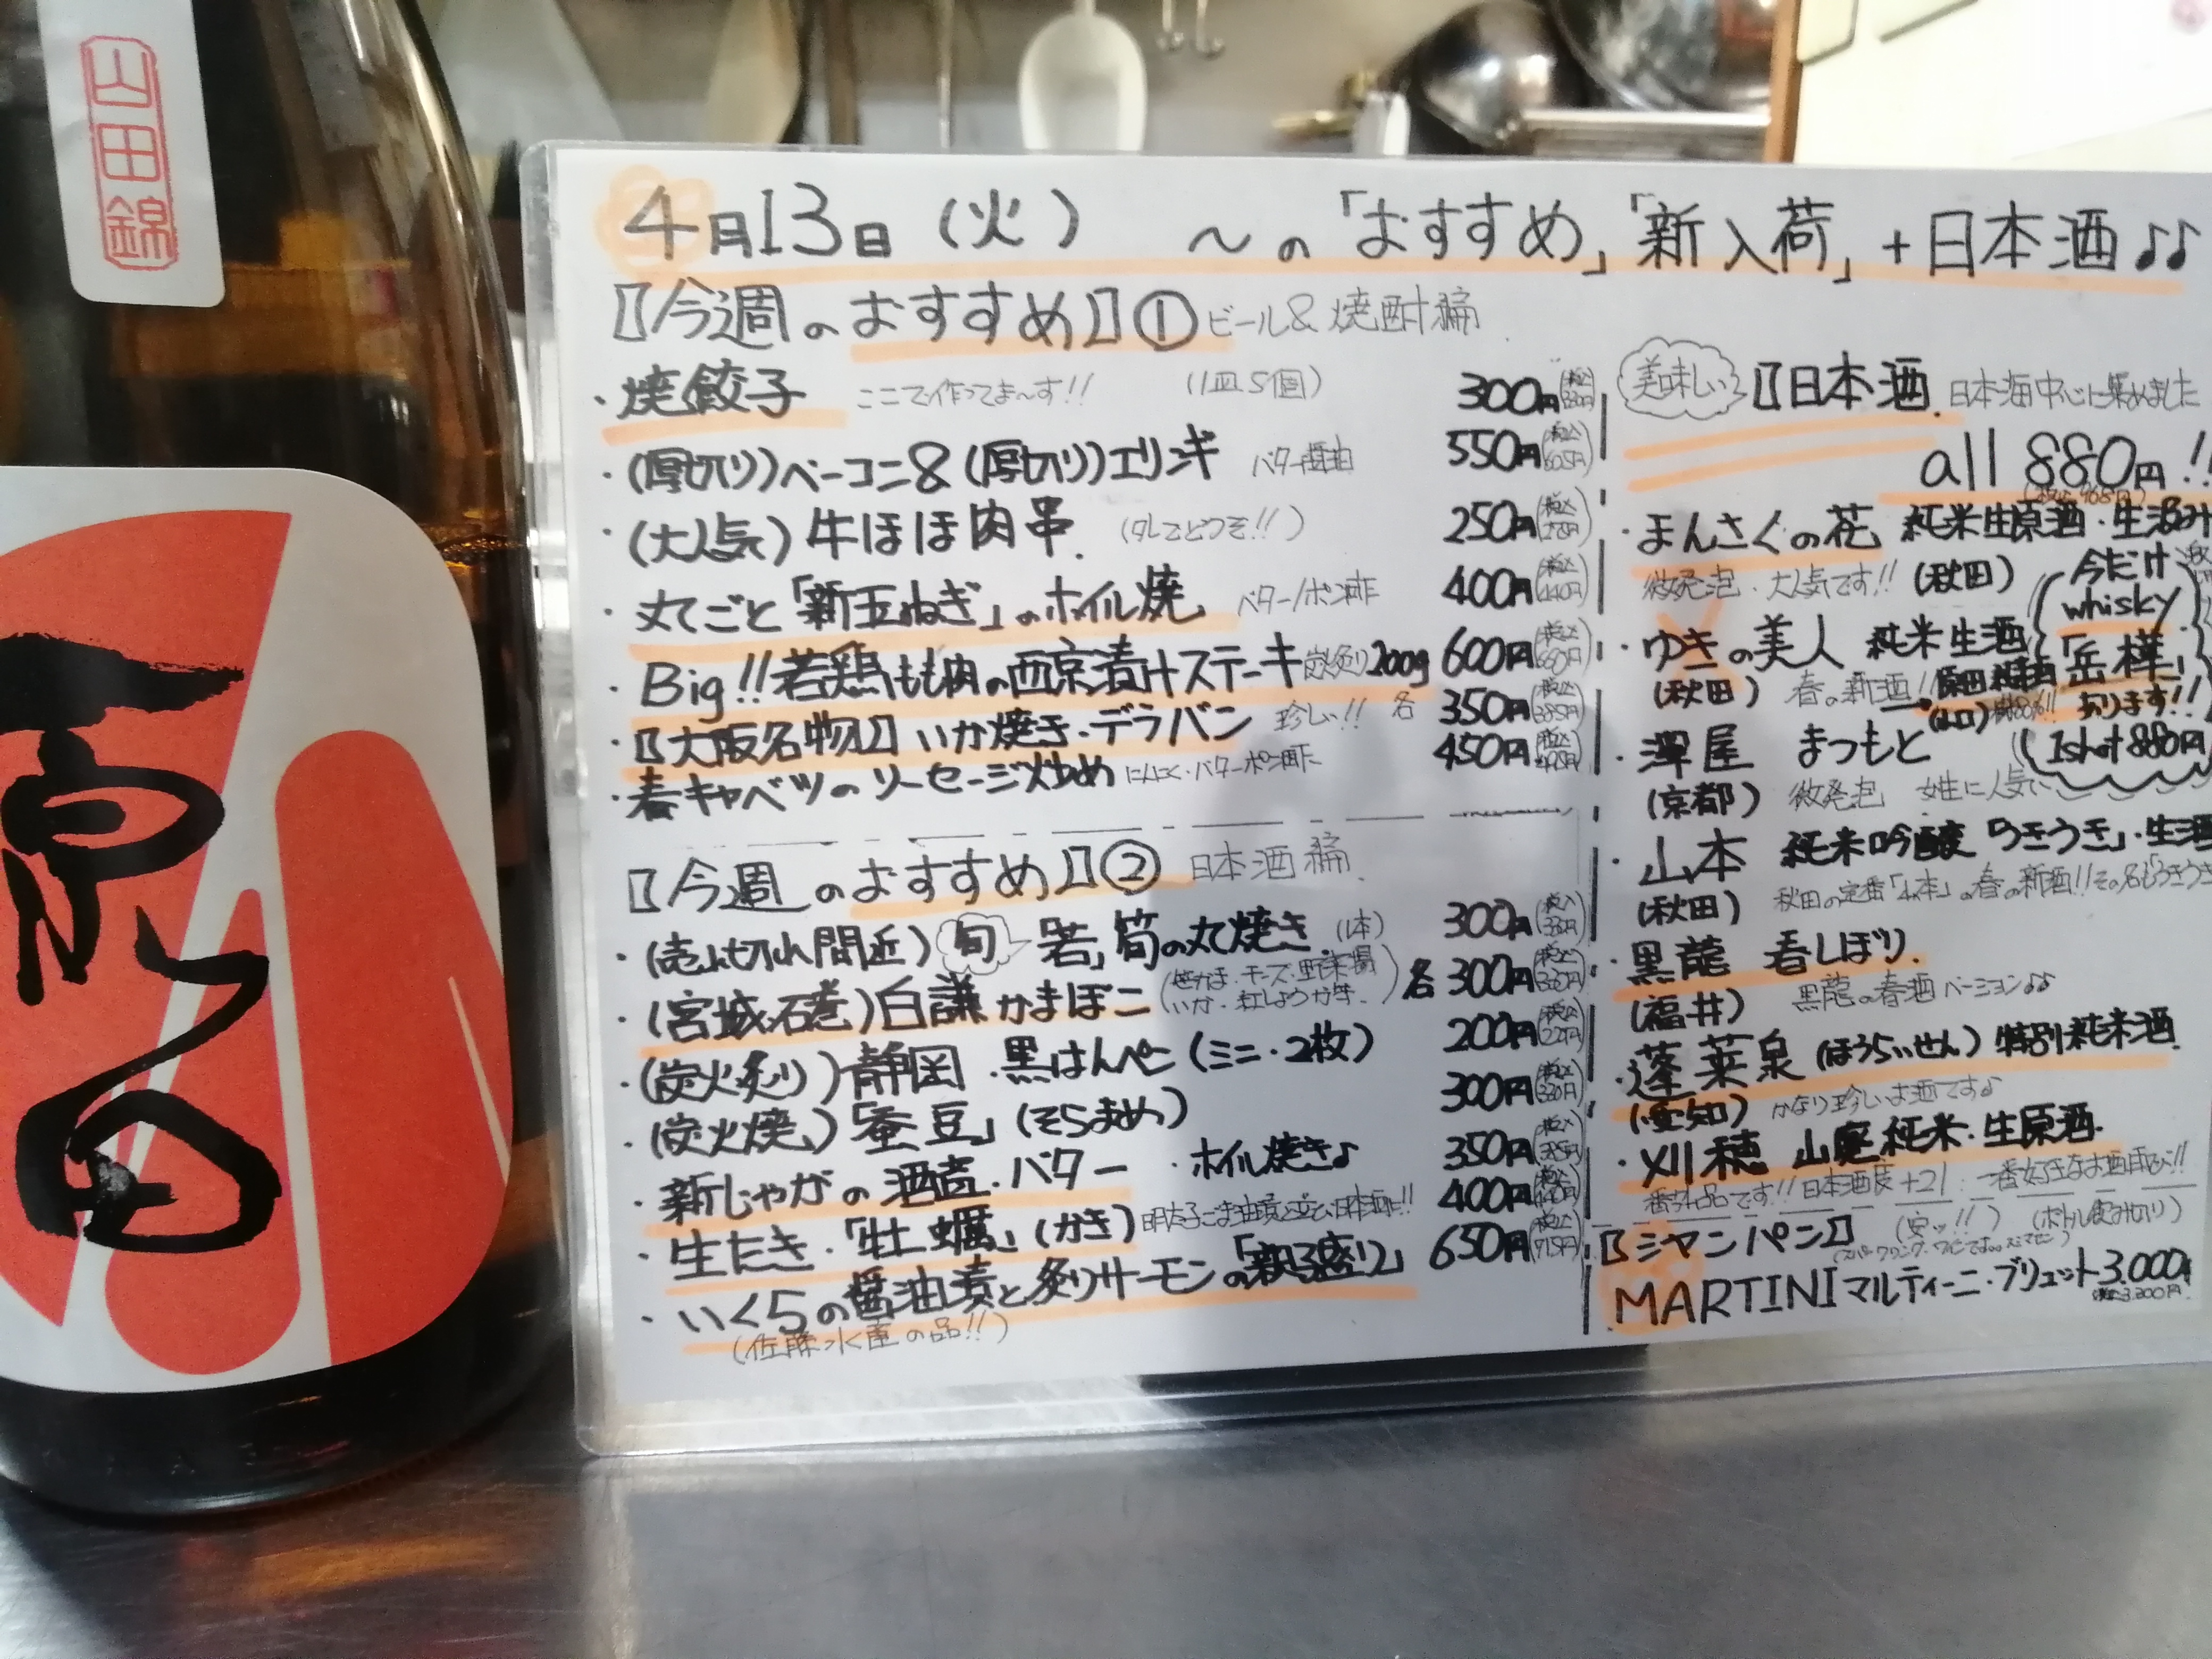 山田錦
原田
4月13日(火) ～の「おすすめ」「新入荷」+日本酒♪♪
〖今週のおすすめ〗① ビール&焼酎編
・焼餃子 ここで作ってま〜す!! (1皿5個) 300円(税込330円)
・(厚切り)ベーコン&(厚切り)エリンギ バター醤油 550円(税込605円)
・(大人気)牛ほほ肉串 (タレでどうぞ!!) 250円(税込275円)
・丸ごと「新玉ねぎ」のホイル焼 バター/ポン酢 400円(税込440円)
・Big!!若鶏もも肉の西京漬けステーキ 炭炙り200g 600円(税込660円)
・〖大阪名物〗いか焼き・デラバン 珍しい!! 各 350円(税込385円)
・春キャベツのソーセージ炒め にんにく・バターポン酢 450円(税込495円)
〖今週のおすすめ〗② 日本酒編
・(売り切れ間近)旬「若」筍の丸焼き (1本) 300円(税込330円)
・(宮城・石巻)白謙かまぼこ (笹かま・チーズ・野菜揚 いか・紅しょうが) 各300円(税込330円)
・(炭火炙り)静岡・黒はんぺん(ミニ・2枚) 200円(税込220円)
・(炭火焼)「蚕豆」(そらまめ) 300円(税込330円)
・新じゃがの酒盗・バター ・ホイル焼き♪ 350円(税込385円)
・生たき・「牡蠣」(かき) 明太子ごま油漬 400円(税込440円)
・いくらの醤油漬と炙りサーモンの「親子盛り」 650円(税込715円)
(佐藤水産の品!!)
美味しい 〖日本酒〗 日本海中心に集めました
all 880円!!
(税込968円)
・まんさくの花 純米生原酒・生酒
微発泡・大人気です!! (秋田)
今だけ
whisky
「岳樺」
あります!!
1shot 880円
・ゆきの美人 純米生酒
(秋田) 春の新酒!!
原田
(山口) 80%!!
・澤屋 まつもと
(京都) 微発泡 女性に人気
・山本 純米吟醸「うきうき」・生酒
(秋田) 秋田の定番「山本」の春の新酒!!その名も「うきうき
・黒龍 春しぼり
(福井) 黒龍の春酒バージョン♪♪
・蓬莱泉(ほうらいせん)特別純米酒
(愛知) かなり珍しいお酒です♪
・刈穂 山廃純米・生原酒
番外品です!!日本酒度+21・一番好きなお酒!!
〖シャンパン〗 (安ッ!!) (ボトル飲み切り)
(スパークリングワインではスミマセン)
MARTINI マルティーニ・ブリュット 3,000円
税込3,300円